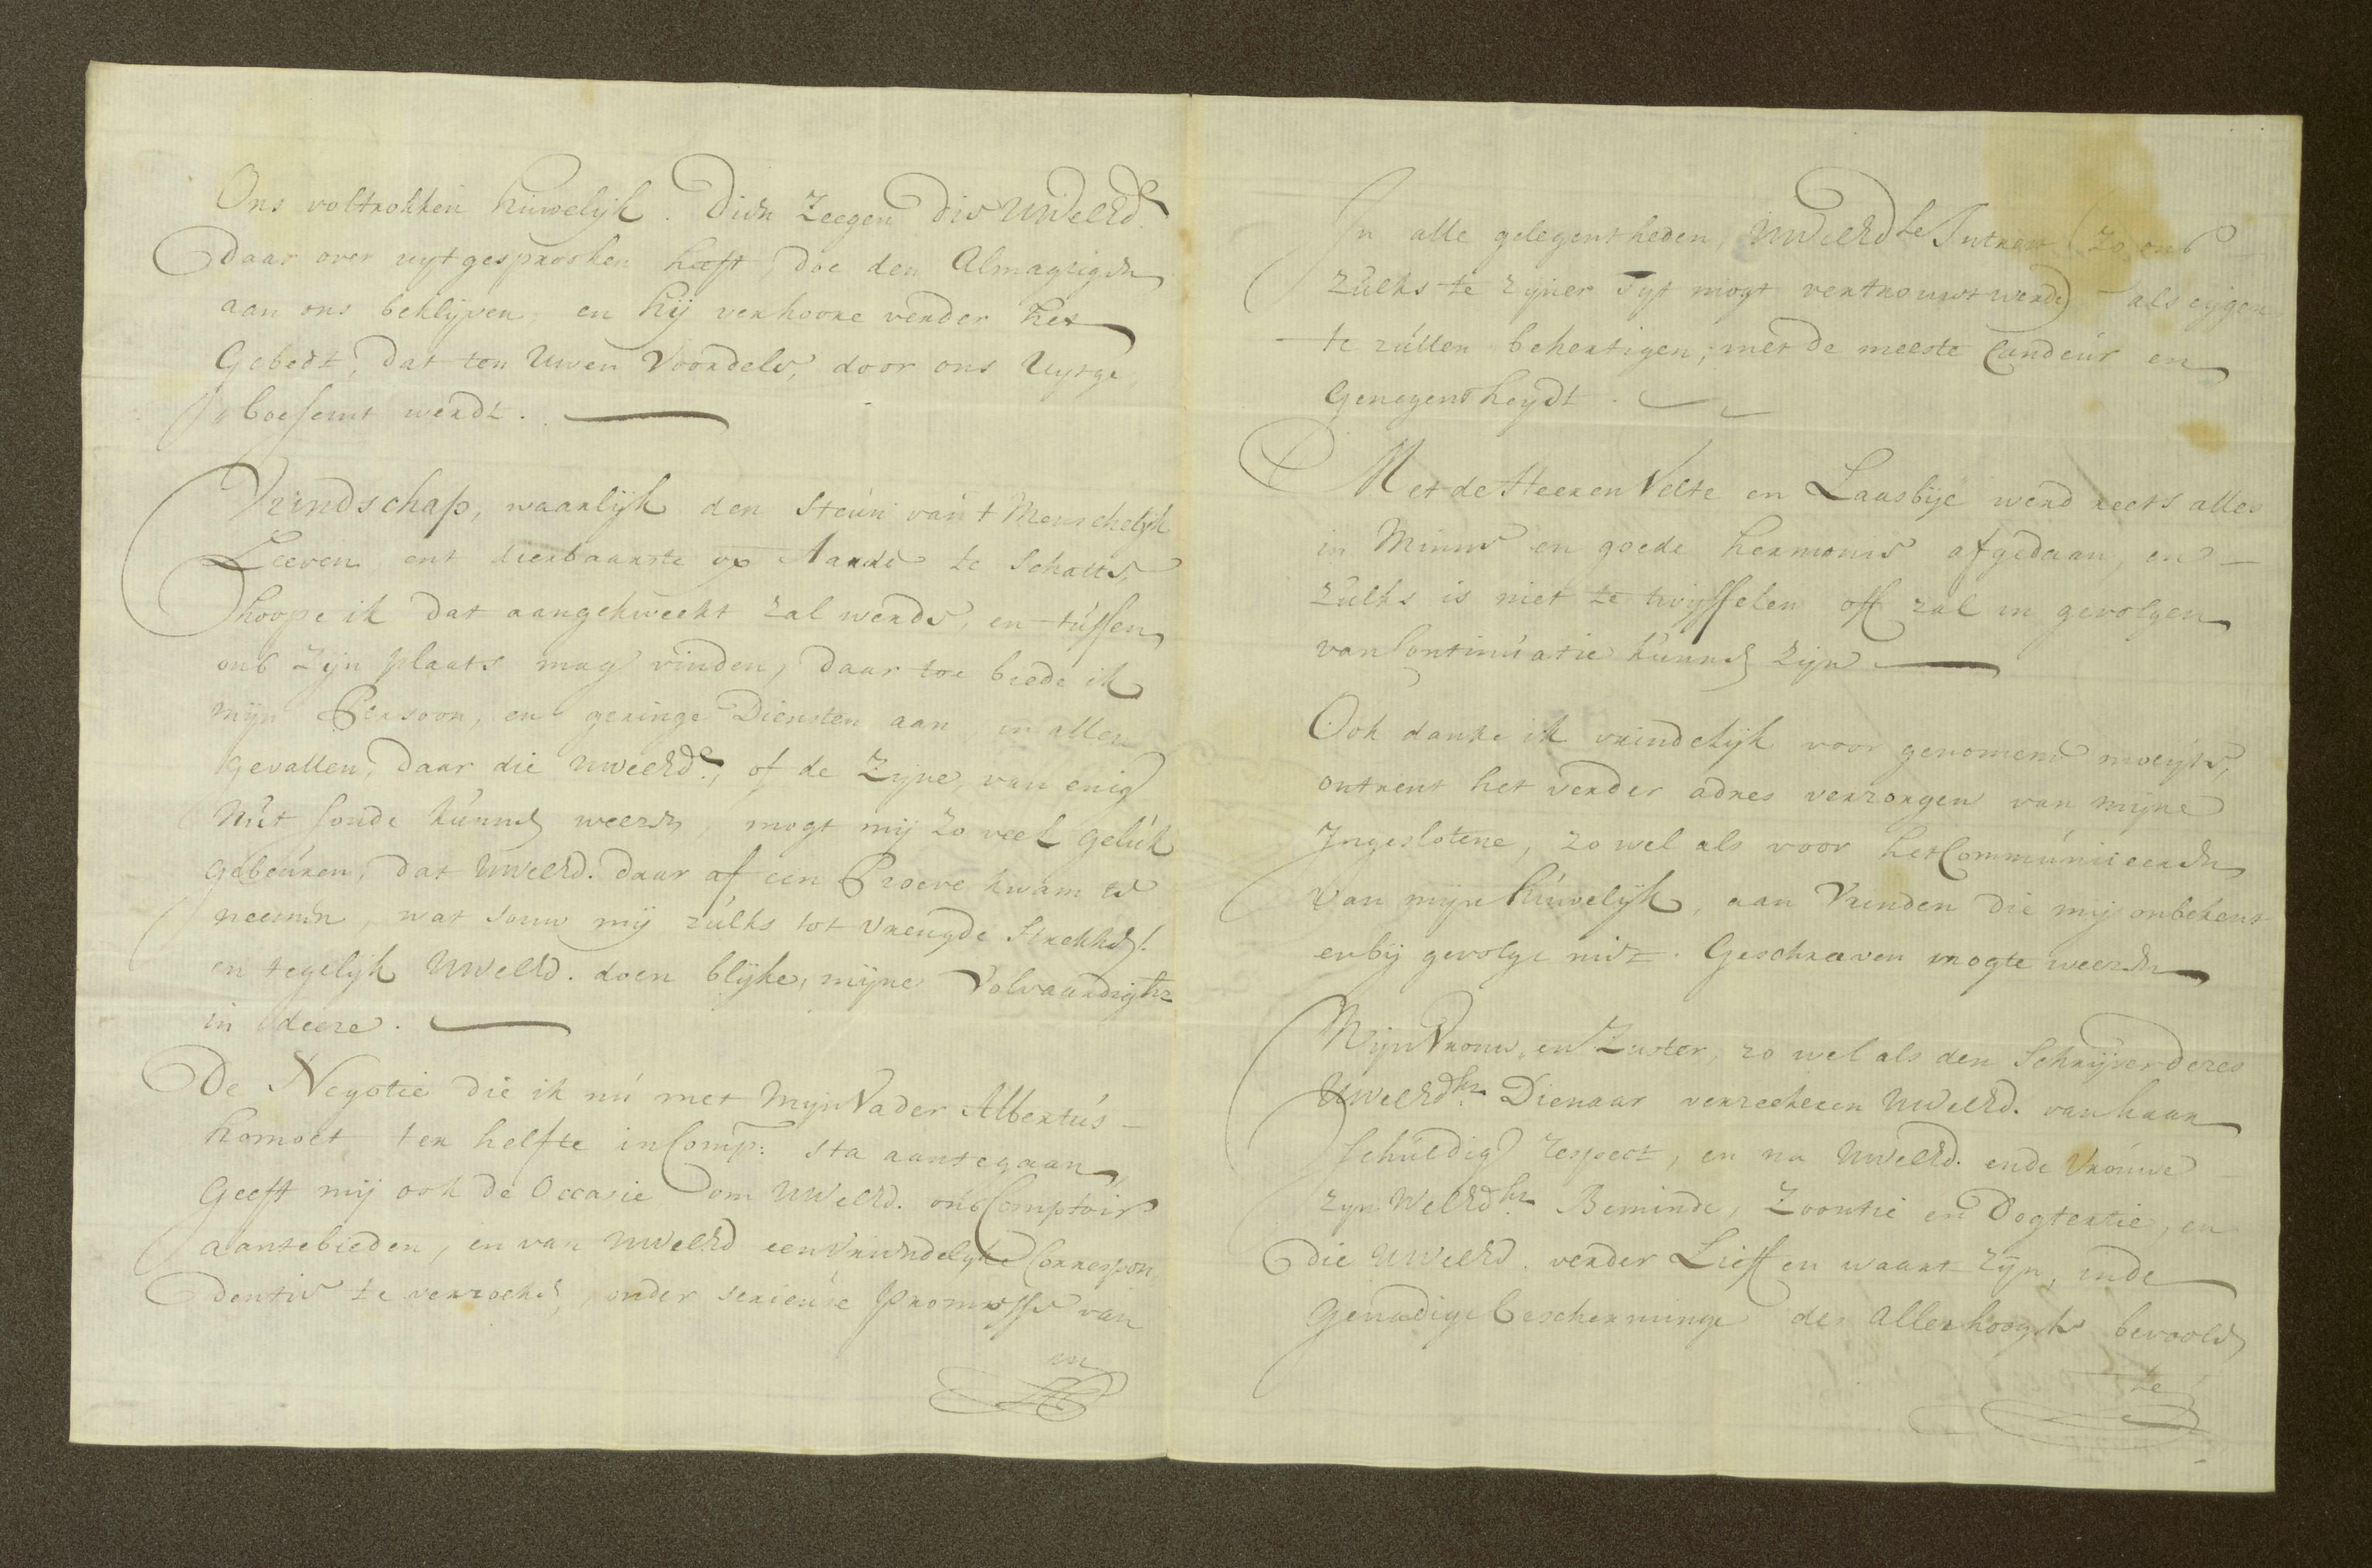 Ons voltrokken huwelijk. Dien Zeegen die UWelEd.
daar over uytgesprooken heeft, doe den Almagtigen
aan ons beklijven, en hij verhoore verder het
Gebedt, dat ten Uwen Voordele, door ons Uytge
boesemt werdt.
Vrindschap, waarlijk den Steún van't Menschelijk
Leeven, ent dierbaarste op Aarde te Schatte,
hoope ik dat aangekweekt zal werde, en tússen
ons zijn plaats mag vinden, daar toe biede ik
mijn Persoon, en geringe Diensten aan, in allen
gevallen, daar die UWelEd., of de Zijne, van enig
Nút soude kúnnen weezen, mogt mij zo veel gelúk
gebeúren, dat UWelEd. daar af een Proeve kwam te
neemen, wat souw mij zúlks tot vreugde Strekken!
en tegelijk UWelEd. doen blijke, mijne Volvaardight
in deeze.
De Negotie die ik nú met Mijn Vader Albertús
Komoet ter helfte in Comp: sta aantegaan,
Geeft mij ook de Occasie om UWelEd. ons Comptoir
aantebieden, en van UWelEd een vriendelijke Correspon
dentie te verzoeken, onder serieúse Promesse van
in
In alle gelegentheden, UWelEd te Intrest (zo ons
zúlks te zijner Tyt mogt vertrouwt werde) als eijgen
te zúllen behertigen, met de meeste Candeúr en
Genegentheijdt.
Met de Heeren Velte en Laasbije werd reets alles
in Minne en goede hermonie afgedaan, en
zúlks is niet te twijffelen off zal in gevolgen
van Continúatie kúnnen zijn
Ook danke ik vrindelijk voor genomene moeijte,
ontrent het verder adres verzorgen van mijne
Ingeslotene, zo wel als voor het Commúniceeren
van mijn húwelijk, aan Vrinden die mij onbekent
en bij gevolge niet Geschreeven mogte weezen
Mijn Vrouw, en Zuster, zo wel als den Schrijver dezes
UWelEd. Dienaar verzeekeren UWelEd. van haar
schúldig respect, en na UWelEd. en de Vroúwe
zijn WelEd. Beminde, Zoontie en Dogtertie, en
die UWelEd. verder Lieff en waart zijn, in de
genadige bescherminge des allerhoogste bevoolen
te